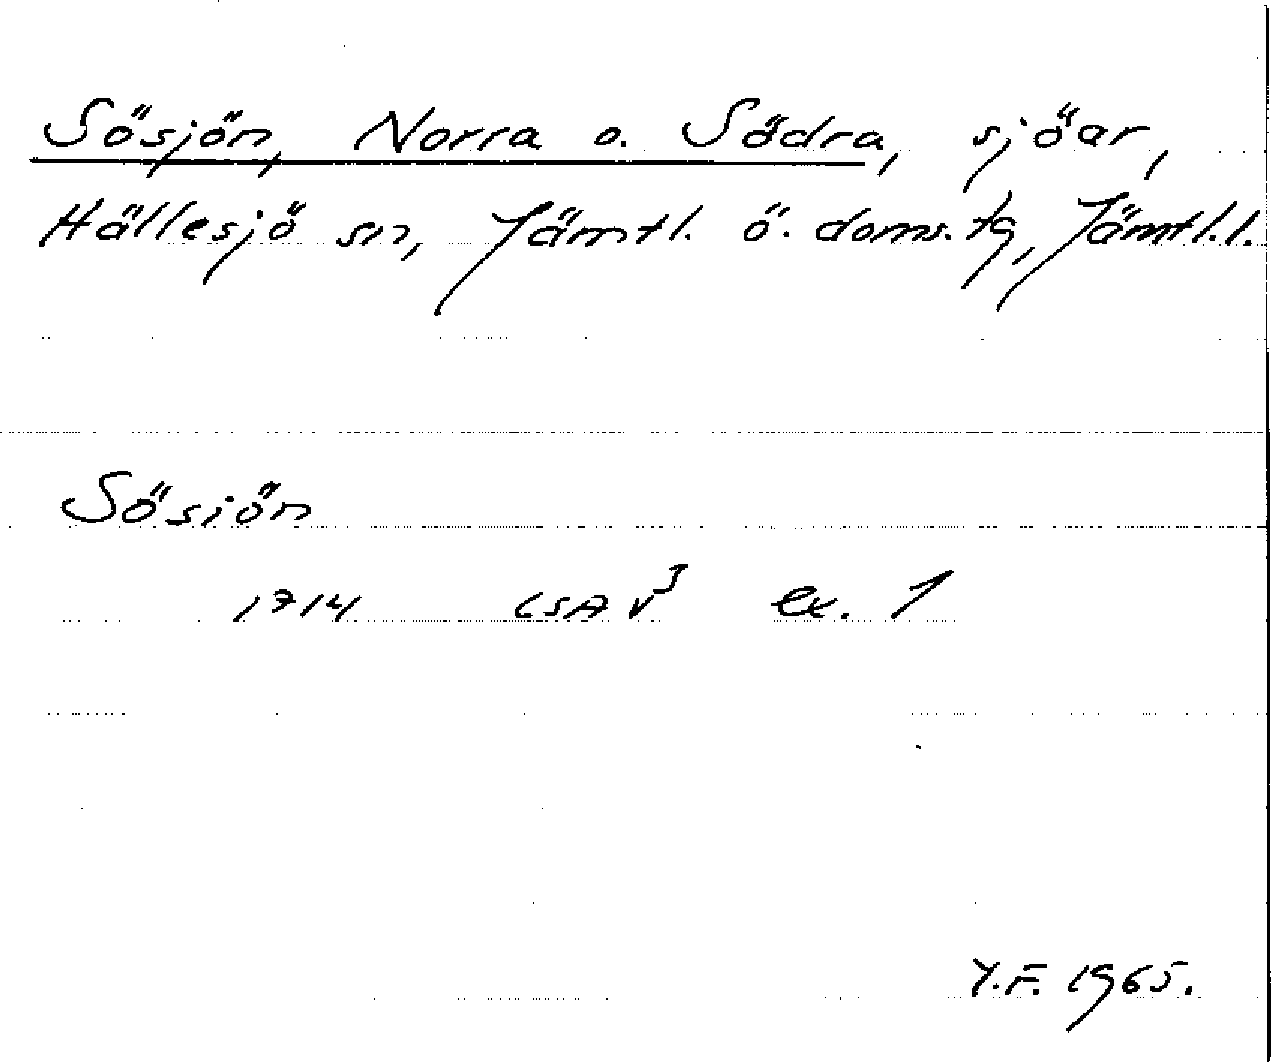 Sösjön, Norra o. Södra, sjöar,
Hällesjö sn, Jämtl. ö. doms. tg, Jämtl. l.
Sösiön
1714 LSA VJ ex. 1
Y.F. 1965.